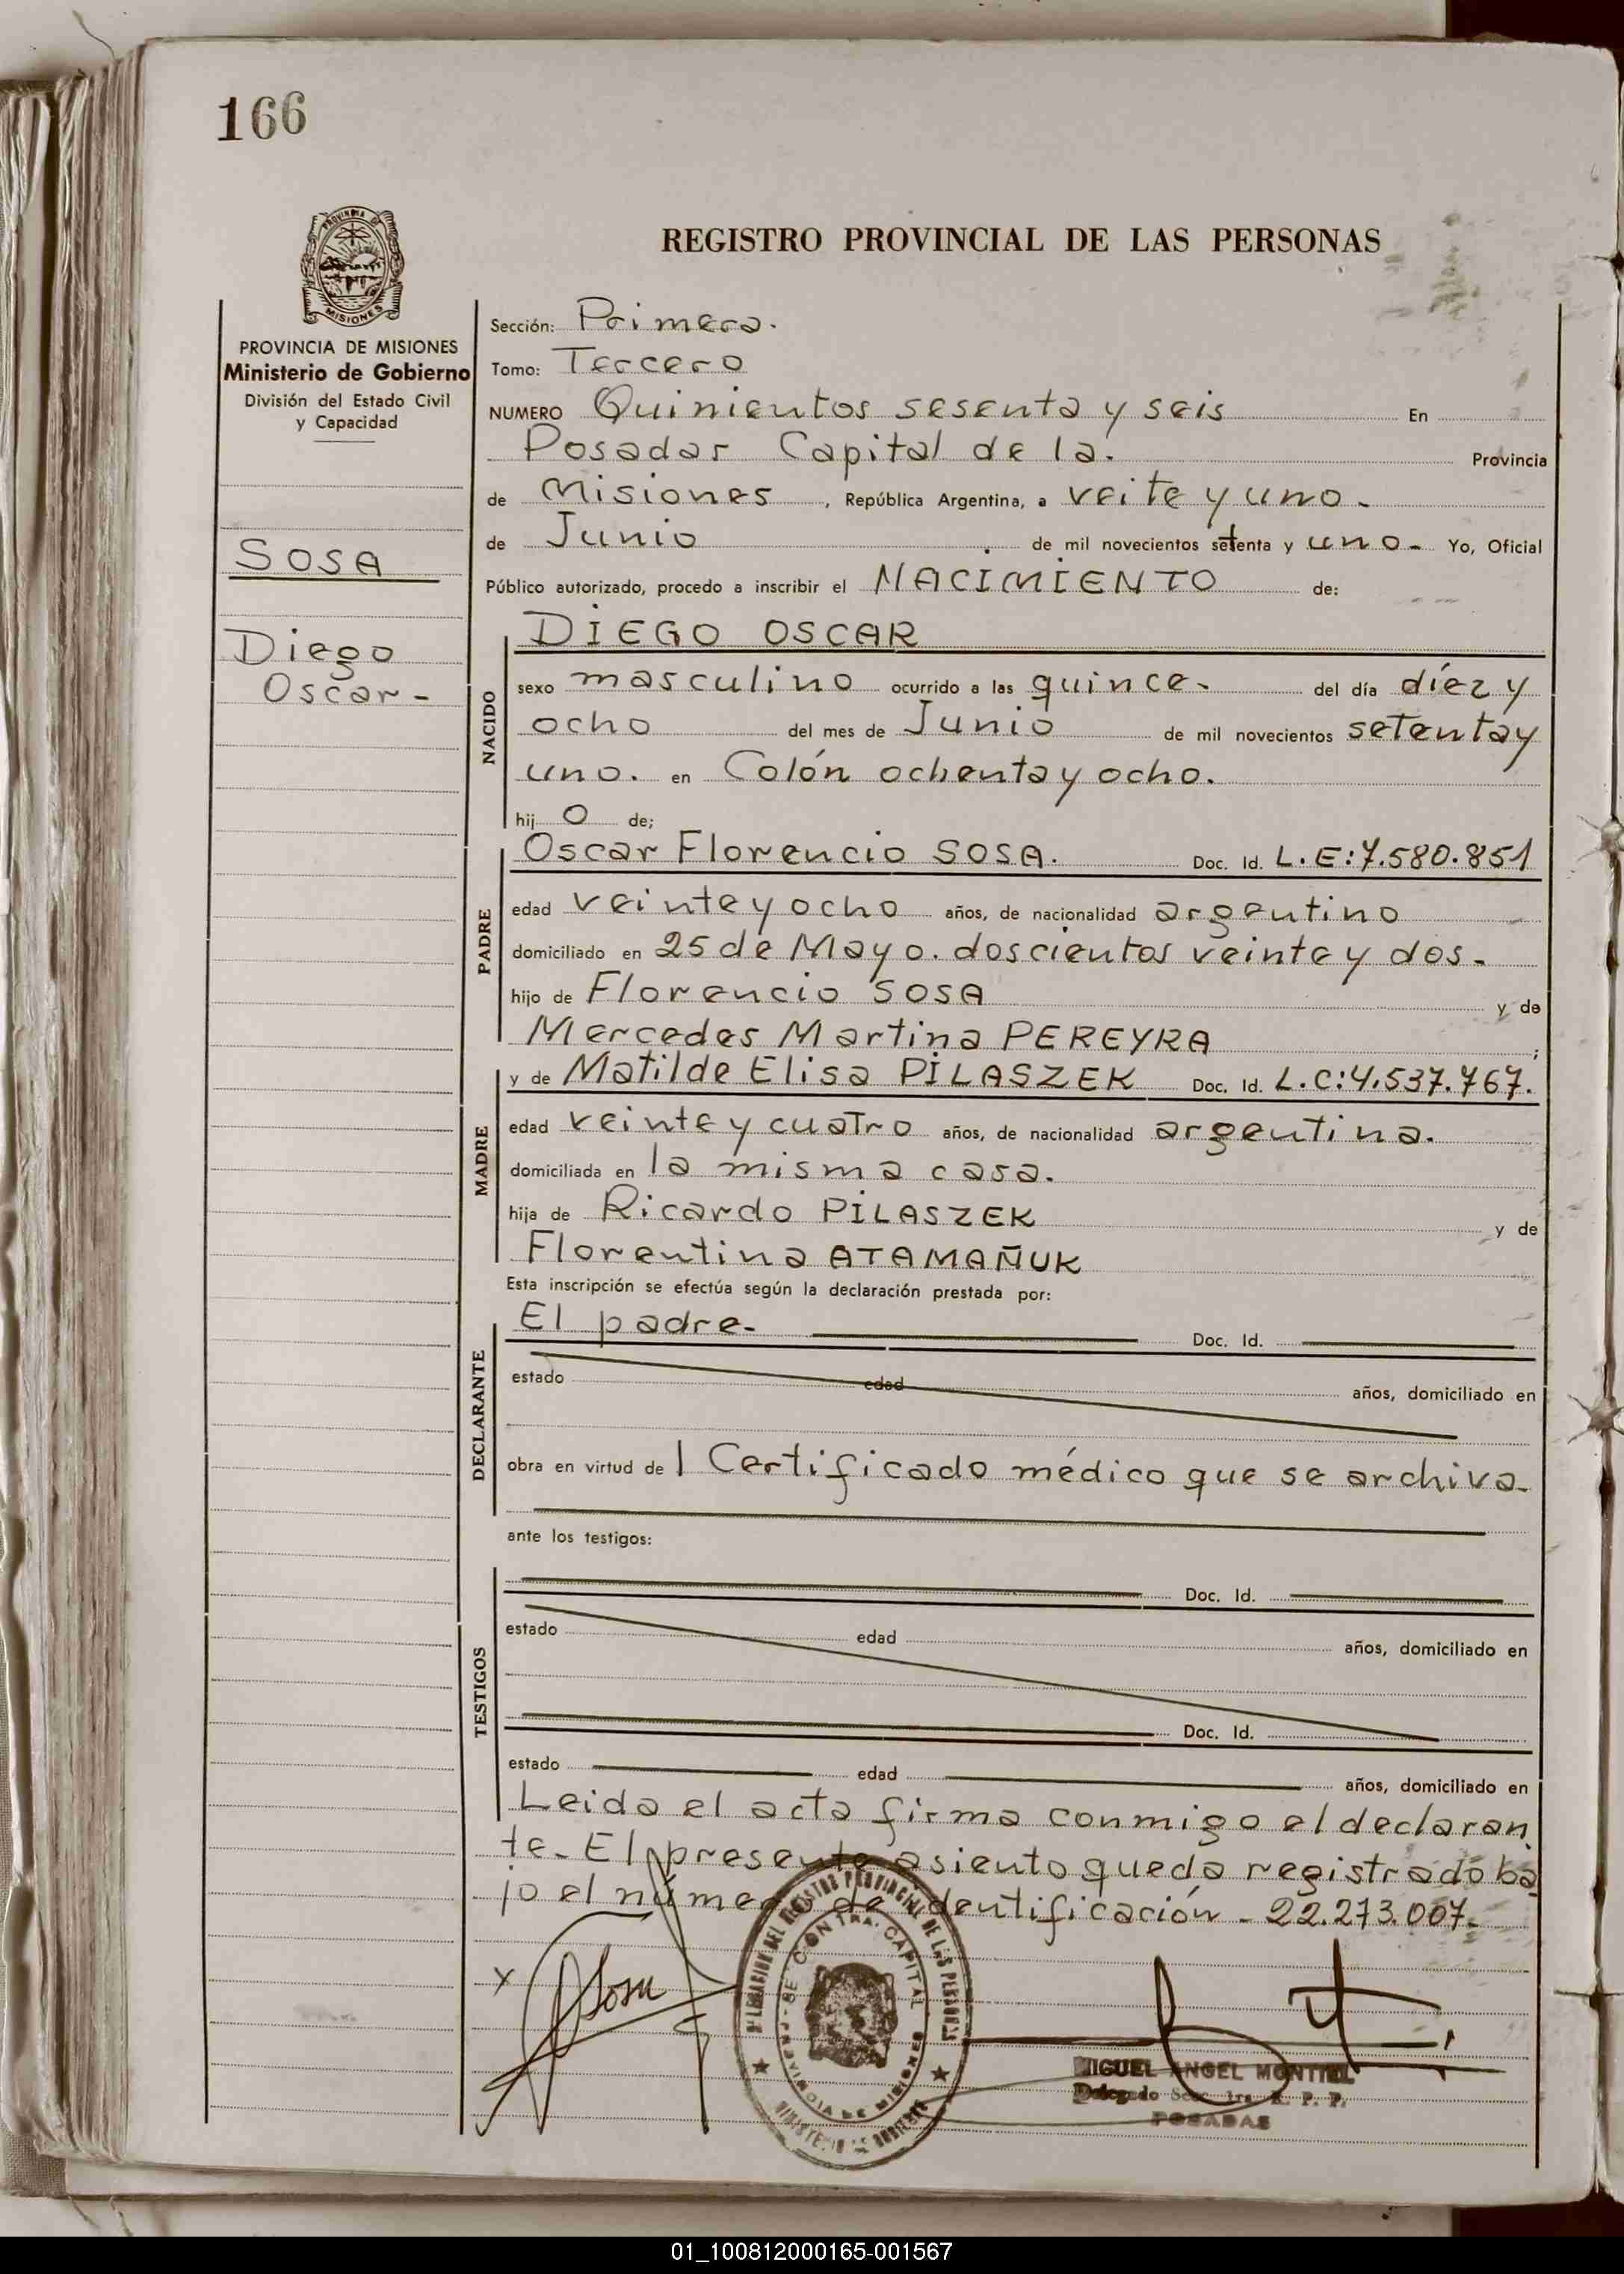 166
PROVINCIA DE
MISIONES
REGISTRO PROVINCIAL DE LAS PERSONAS
PROVINCIA DE MISIONES
Ministerio de Gobierno
División del Estado Civil
y Capacidad
SOSA
Diego
Oscar-
Sección: Primera.
Tomo: Tercero
NUMERO Quinientos sesenta y seis En
Posadas Capital de la. Provincia
de Misiones, República Argentina, a veite y uno.
de Junio de mil novecientos setenta y uno. Yo, Oficial
Público autorizado, procedo a inscribir el NACIMIENTO de:
NACIDO
DIEGO OSCAR
sexo masculino ocurrido a las quince. del día díez y
ocho del mes de Junio de mil novecientos setenta y
uno. en Colón ochenta y ocho.
hij o de;
PADRE
Oscar Florencio SOSA. Doc. Id. L.E:7.580.851
edad veinte y ocho años, de nacionalidad argentino
domiciliado en 25 de Mayo. doscientos veinte y dos.
hijo de Florencio SOSA y de
Mercedes Martina PEREYRA ;
MADRE
y de Matilde Elisa PILASZEK Doc. Id. L.C:4.537.767.
edad veinte y cuatro años, de nacionalidad argentina.
domiciliada en la misma casa.
hija de Ricardo PILASZEK y de
Florentina ATAMAÑUK
Esta inscripción se efectúa según la declaración prestada por:
DECLARANTE
El padre- Doc. Id.
estado edad años, domiciliado en
obra en virtud de 1 Certificado médico que se archiva-
ante los testigos:
TESTIGOS
Doc. Id.
estado edad años, domiciliado en
Doc. Id.
estado edad años, domiciliado en
Leida el acta firma conmigo el declaran
te. El presente asiento queda registrado ba
jo el número de identificación - 22.273.007-
x Sosa
DEL REGISTRO PROVINCIAL DE LAS PERSONAS
CAPITAL
PROVINCIA DE MISIONES
MIGUEL ANGEL MONTIEL
Delegado Secc. 1ra. R. P. P.
POSADAS
01_100812000165-001567